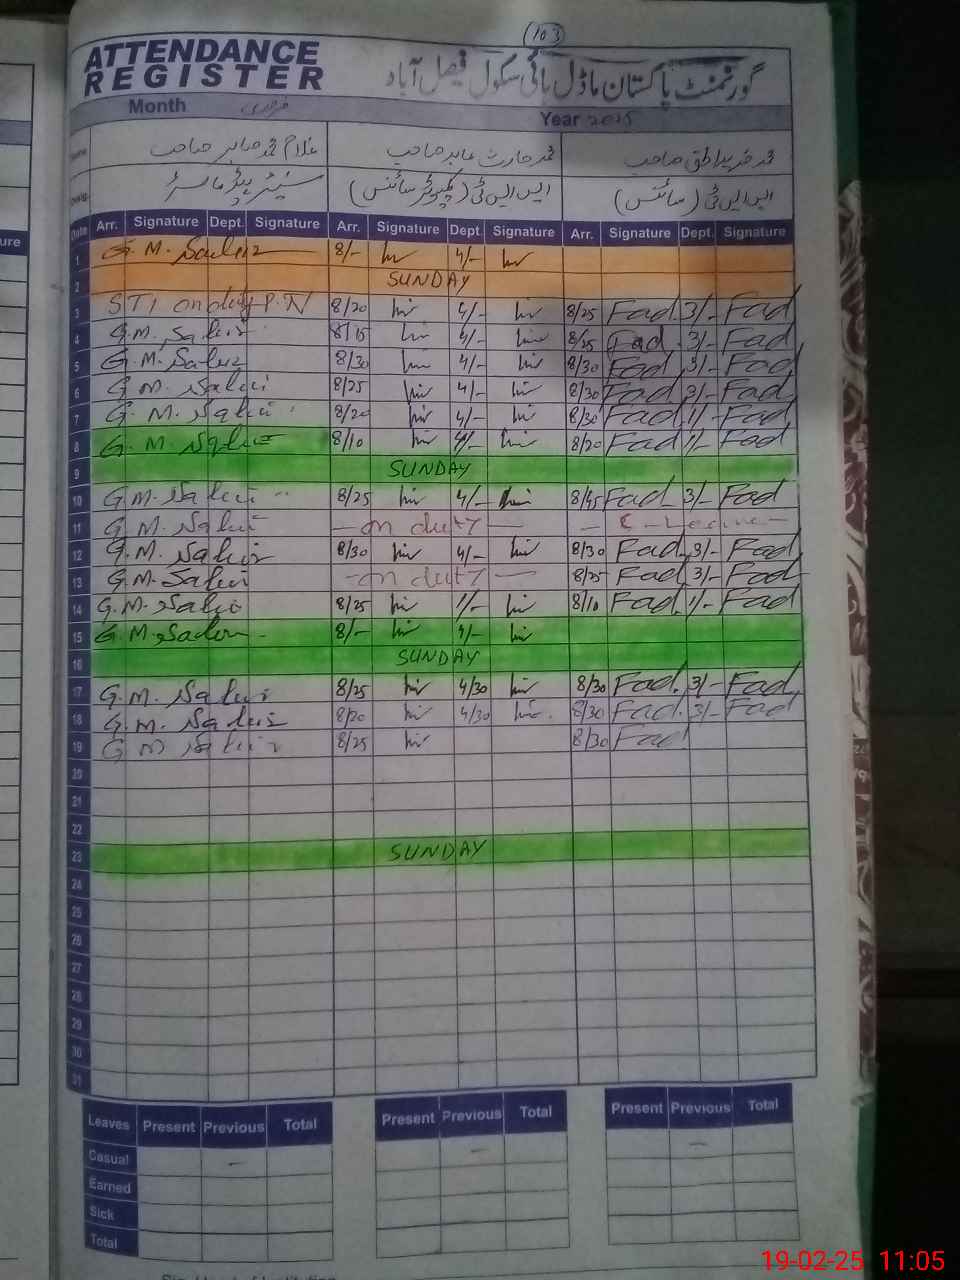 103
ATTENDANCE
REGISTER
گورنمنٹ پاکستان ماڈل ہائی سکول فیصل آباد
Month فروری Year 2025
غلام محمد صابر صاحب محمد حارث عابد صاحب محمد فرید الحق صاحب
سینئر ہیڈ ماسٹر ایس ایس ٹی (کمپیوٹر سائنس) ایس ایس ٹی (سائنس)
Date Arr. Signature Dept. Signature Arr. Signature Dept. Signature Arr. Signature Dept. Signature
1 G. M. Sabir 8/- 4/-
2 SUNDAY
3 STI on duty P.N 8/20 4/- 8/25 Fad. 3/- Fad
4 G.M. Sabir 8/15 4/- 8/25 Fad. 3/- Fad
5 G.M. Sabir 8/30 4/- 8/30 Fad 3/- Fad
6 G.M. Sabir 8/25 4/- 8/30 Fad 3/- Fad
7 G.M. Sabir 8/20 4/- 8/30 Fad 1/- Fad
8 G.M. Sabir 8/10 4/- 8/20 Fad 1/- Fad
9 SUNDAY
10 G.M. Sabir 8/25 4/- 8/45 Fad 3/- Fad
11 G.M. Sabir - on duty - - C - Leave -
12 G.M. Sabir 8/30 4/- 8/30 Fad. 3/- Fad
13 G.M. Sabir - on duty - 8/25 Fad 3/- Fad
14 G.M. Sabir 8/25 1/- 8/10 Fad. 1/- Fad
15 G.M. Sabir 8/- 4/-
16 SUNDAY
17 G.M. Sabir 8/25 4/30 8/30 Fad. 3/- Fad
18 G.M. Sabir 8/20 4/30 8/30 Fad. 3/- Fad
19 G M Sabir 8/25 8/30 Fad
20
21
22
23 SUNDAY
24
25
26
27
28
29
30
31
Leaves Present Previous Total Present Previous Total Present Previous Total
Casual - - -
Earned
Sick
Total
19-02-25 11:05